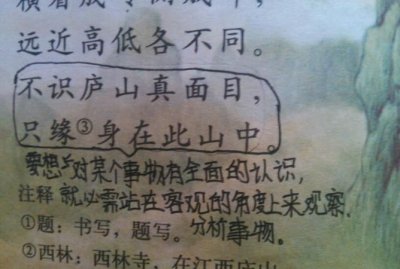 横看成
远近高低各不同。
不识庐山真面目，
只缘③身在此山中。
要想对某个事物有全面的认识，
注释 就必需站在客观的角度上来观察.
①题：书写，题写。分析事物。
②西林：西林寺，在江西庐山